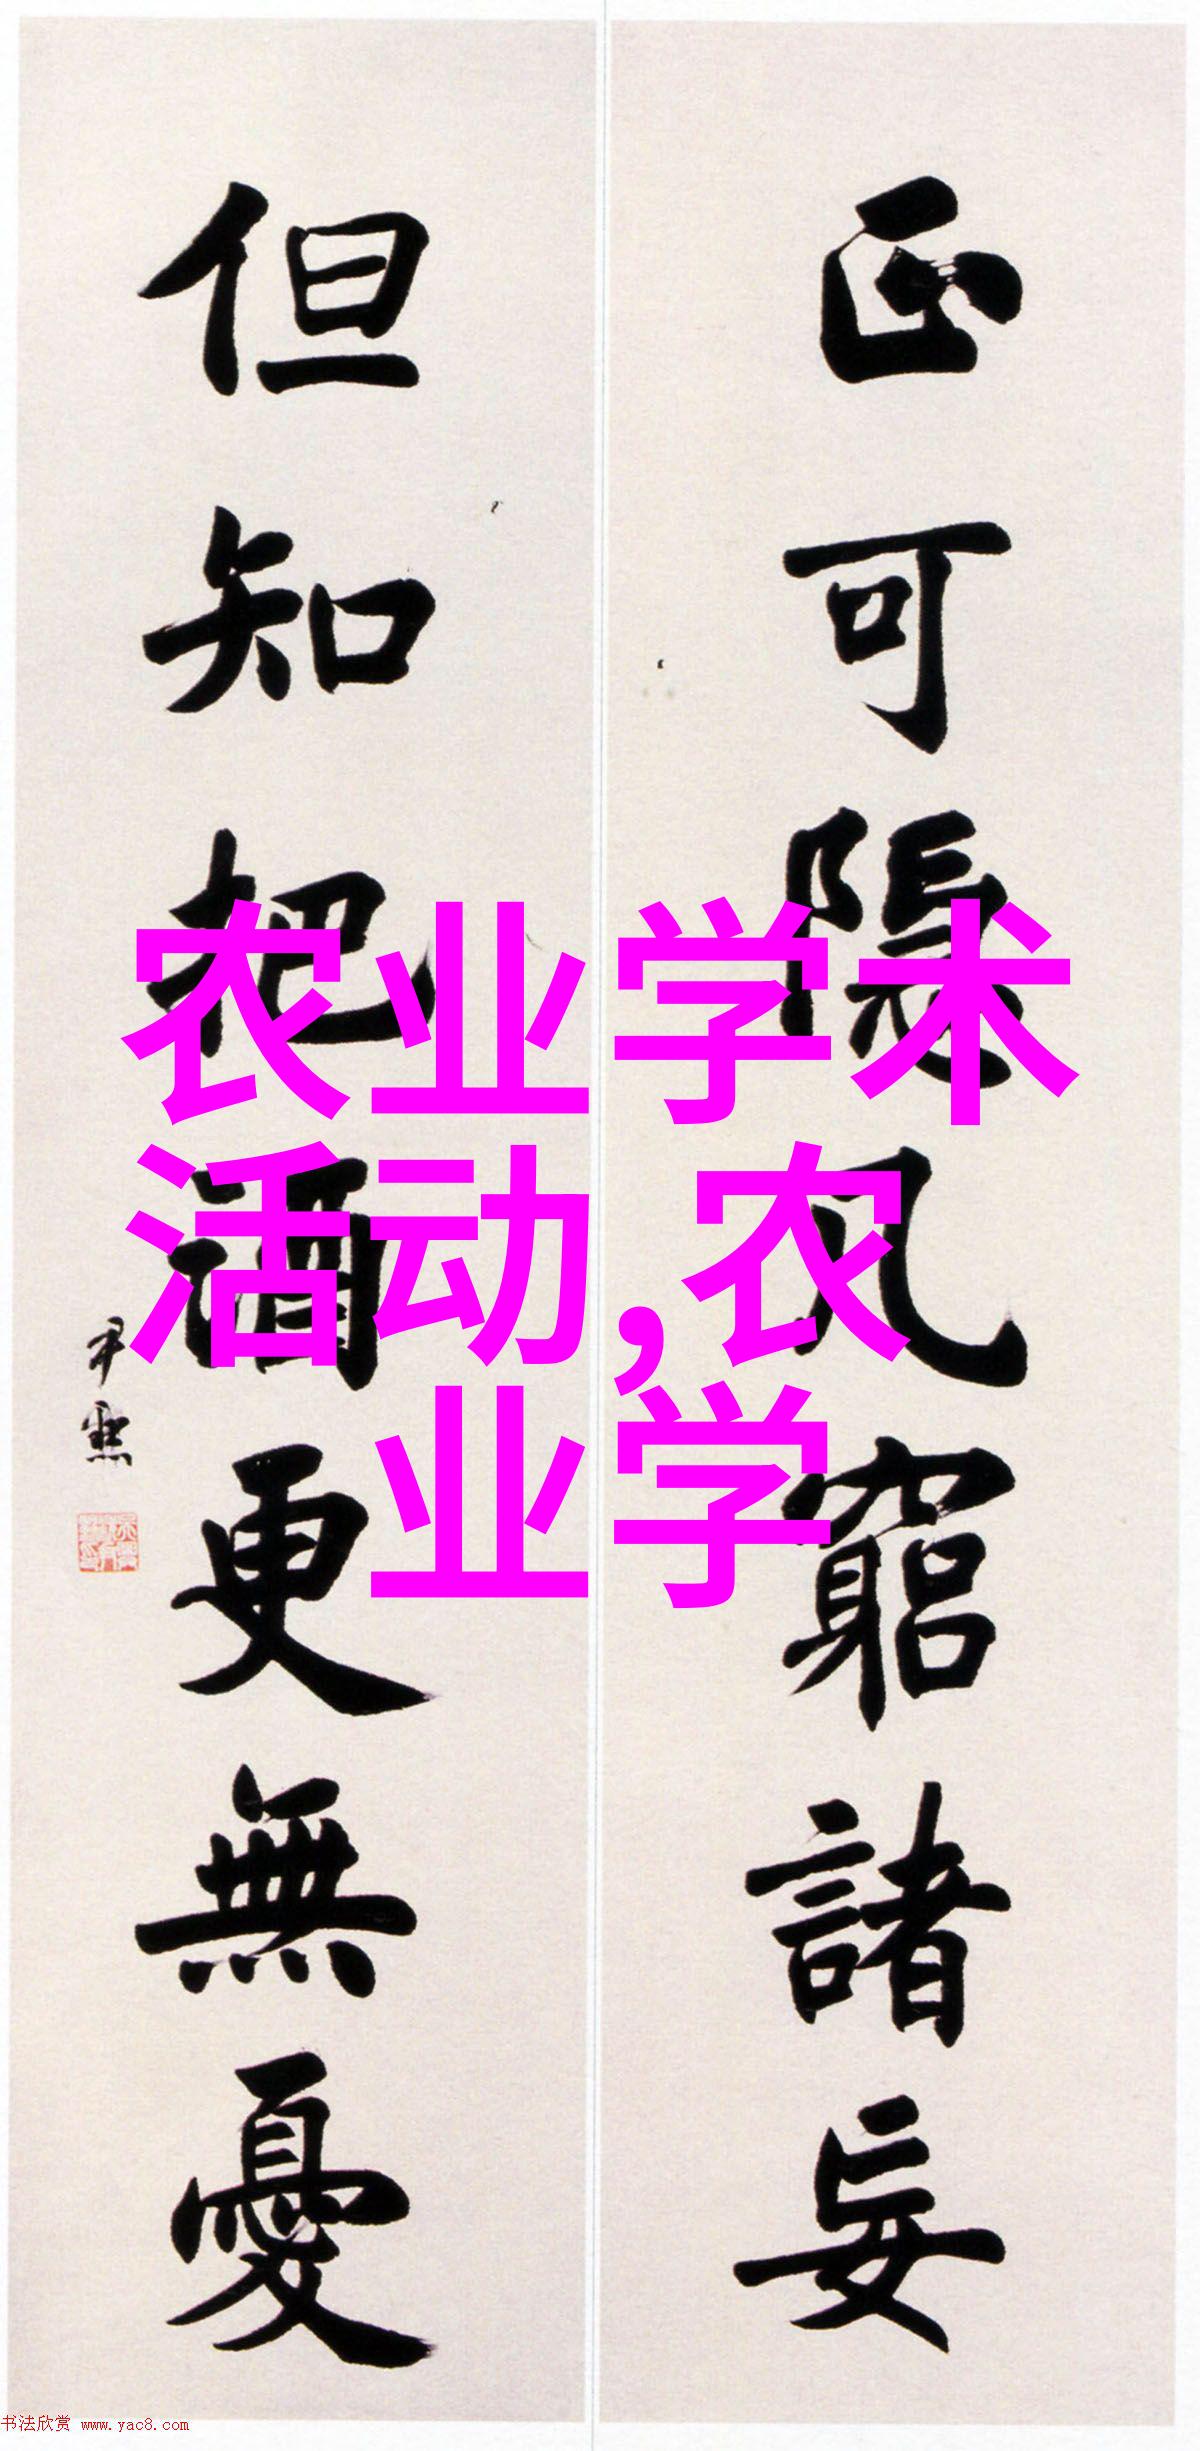 正可隱几窮諸妄
但知把酒更無憂
尹默
农业学术
活动,农
业学
书法欣赏 www.yac8.com